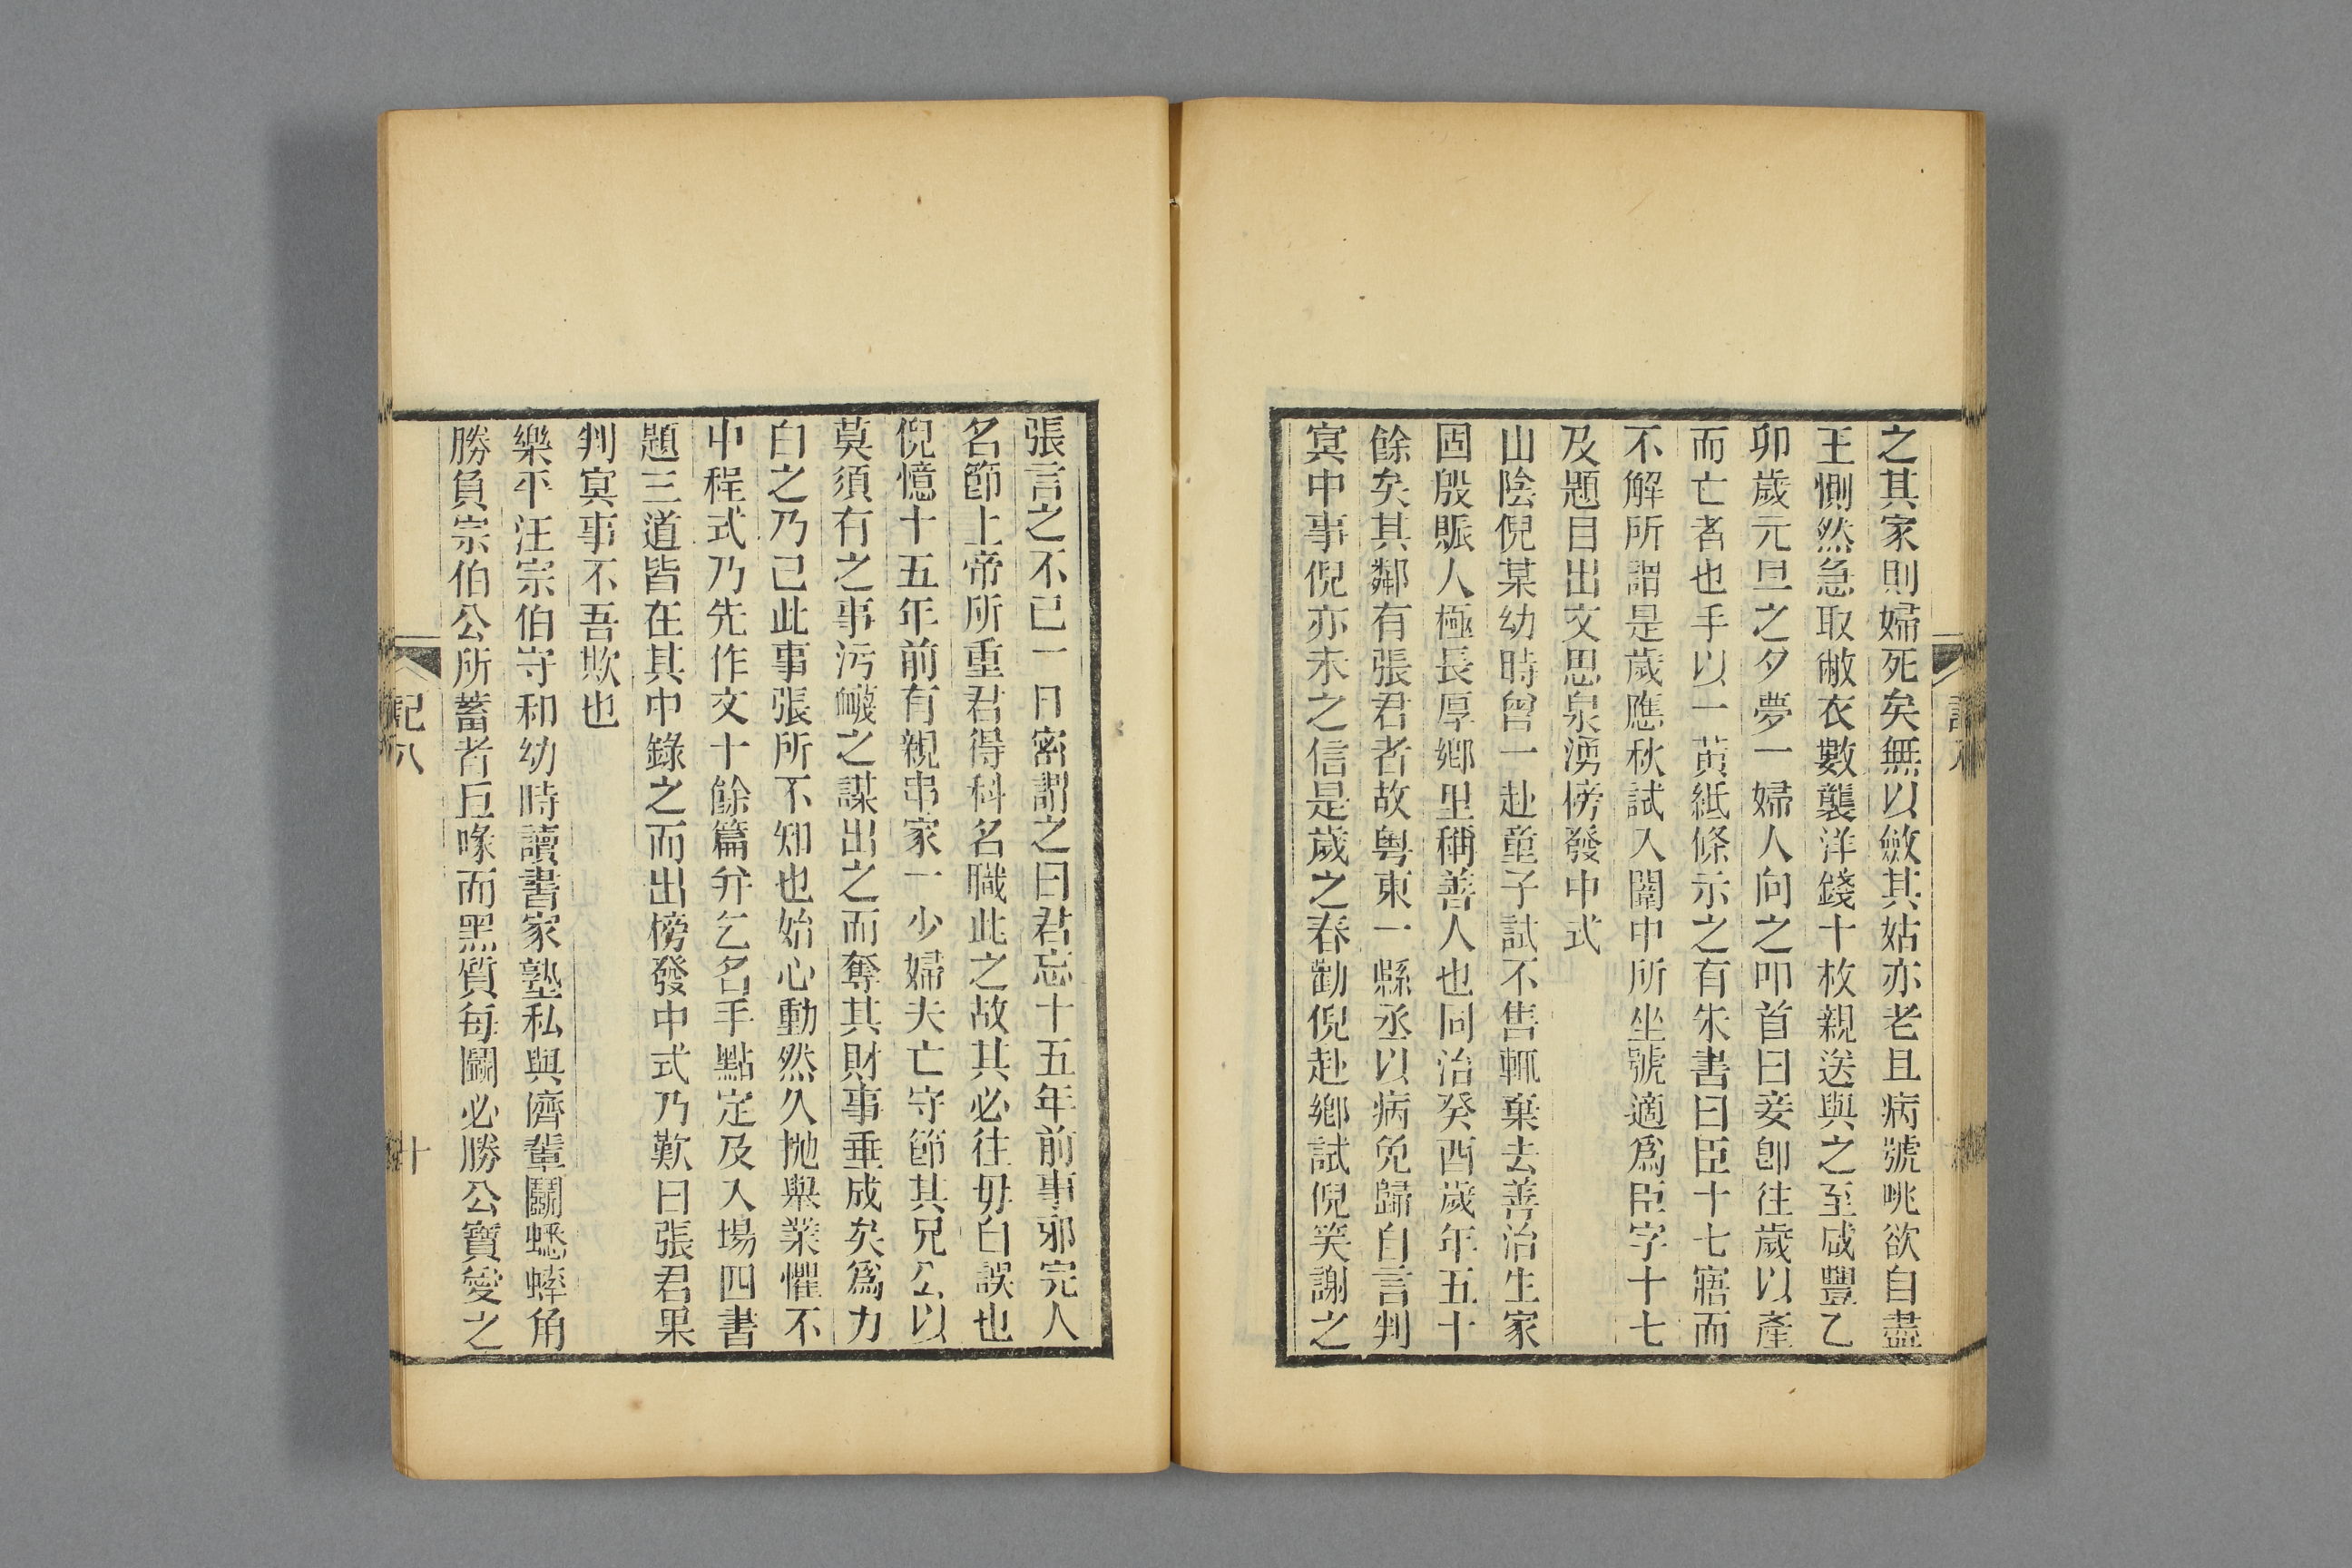 之其家則婦死矣無以斂其姑亦老且病號咷欲自盡
王惻然急取敝衣數襲洋錢十枚親送與之至咸豐乙
卯歲元旦之夕夢一婦人向之叩首曰妾卽往歲以產
而亡者也手以一黃紙條示之有朱書曰臣十七寤而
不解所謂是歲應秋試入闈中所坐號適爲臣字十七
及題目出文思泉湧傍發中式
山陰倪某幼時曾一赴童子試不售輒棄去善治生家
固殷賑人極長厚鄉里稱善人也同治癸酉歲年五十
餘矣其鄰有張君者故粵東一縣丞以病免歸自言判
冥中事倪亦未之信是歲之春勸倪赴鄉試倪笑謝之
張言之不已一日密謂之曰君忘十五年前事邪完人
名節上帝所重君得科名職此之故其必往毋自誤也
倪憶十五年前有親串家一少婦夫亡守節其兄公以
莫須有之事污衊之謀出之而奪其財事垂成矣爲力
白之乃已此事張所不知也始心動然久拋舉業懼不
中程式乃先作文十餘篇幷乞名手點定及入場四書
題三道皆在其中錄之而出榜發中式乃歎曰張君果
判冥事不吾欺也
樂平汪宗伯守和幼時讀書家塾私與儕輩鬭蟋蟀角
勝負宗伯公所蓄者巨喙而黑質每鬭必勝公寶愛之
記八
十